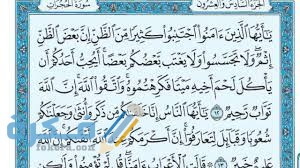 الجزء السادس والعشرون سورة الحجرات
يَٰٓأَيُّهَا ٱلَّذِينَ ءَامَنُواْ ٱجۡتَنِبُواْ كَثِيرٗا مِّنَ ٱلظَّنِّ إِنَّ بَعۡضَ ٱلظَّنِّ
إِثۡمٞۖ وَلَا تَجَسَّسُواْ وَلَا يَغۡتَب بَّعۡضُكُم بَعۡضًاۚ أَيُحِبُّ أَحَدُكُمۡ أَن
يَأۡكُلَ لَحۡمَ أَخِيهِ مَيۡتٗا فَكَرِهۡتُمُوهُۚ وَٱتَّقُواْ ٱللَّهَۚ إِنَّ ٱللَّهَ
تَوَّابٞ رَّحِيمٞ ١٢ يَٰٓأَيُّهَا ٱلنَّاسُ إِنَّا خَلَقۡنَٰكُم مِّن ذَكَرٖ وَأُنثَىٰ وَجَعَلۡنَٰكُمۡ
شُعُوبٗا وَقَبَآئِلَ لِتَعَارَفُوٓاْۚ إِنَّ أَكۡرَمَكُمۡ عِندَ ٱللَّهِ